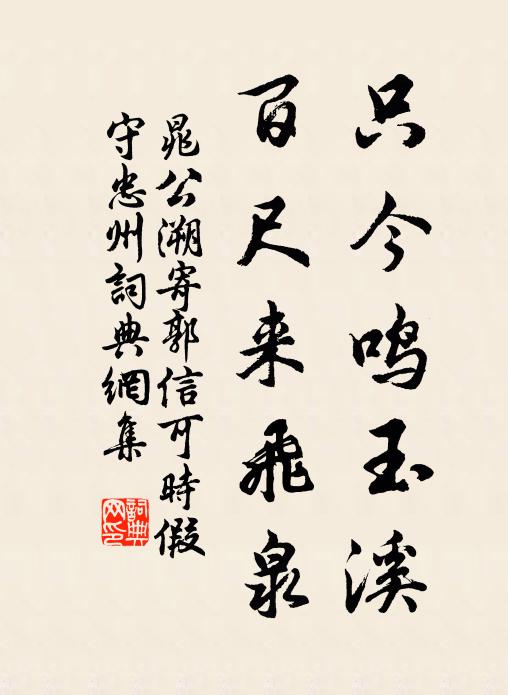 只今鸣玉溪
百尺来飛泉
晁公溯寄郭信可時假
守忠州詞典網集
詞典
网印